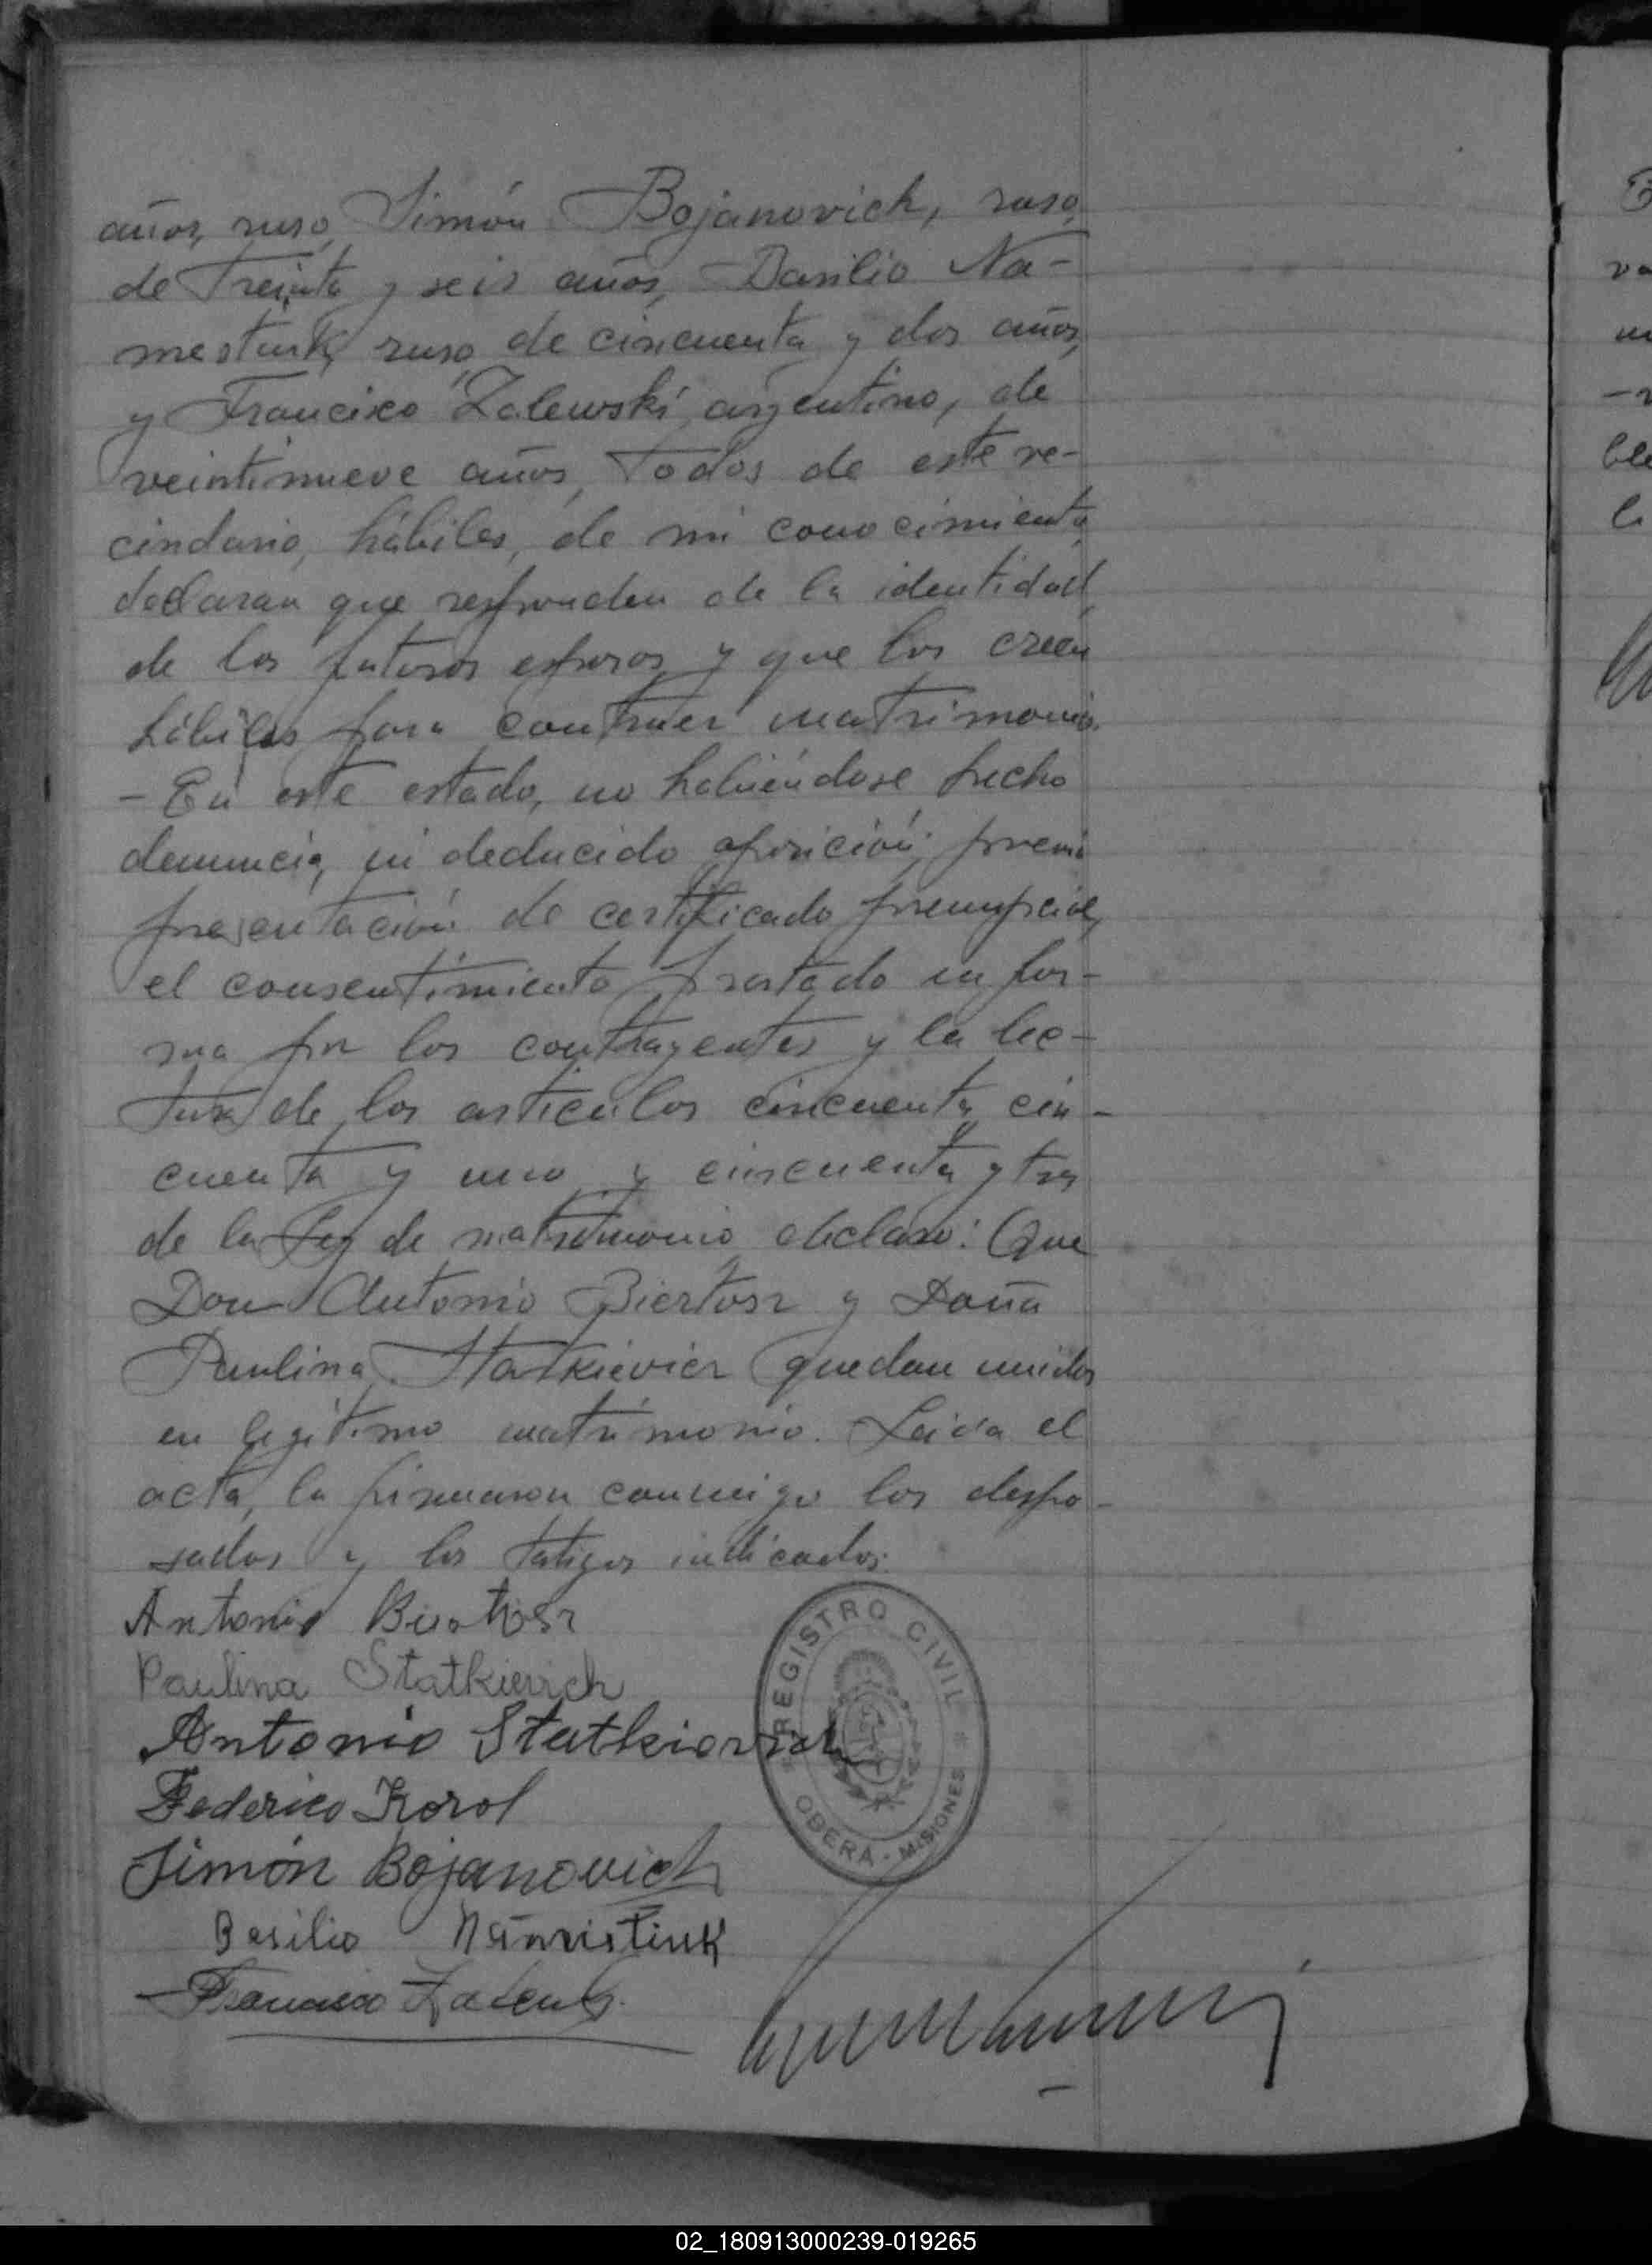 años, ruso, Simón Bojanovich, ruso,
de treinta y seis años, Basilio Na-
mestiuk, ruso, de cincuenta y dos años,
y Francisco Zalewski, argentino, de
veintinueve años, todos de este ve-
cindario, hábiles, de mi conocimiento,
declaran que responden de la identidad
de los futuros esposos y que los creen
hábiles para contraer matrimonio.
- En este estado, no habiéndose hecho
denuncia, ni deducido oposición, previa
presentación de certificado prenupcial,
el consentimiento prestado en for-
ma por los contrayentes y la lec-
tura de los artículos cincuenta, cin-
cuenta y uno y cincuenta y tres
de la Ley de matrimonio, declaro: Que
Don Antonio Biertosz y Doña
Paulina Statkievicz quedan unidos
en legítimo matrimonio. Leida el
acta, la firmaron conmigo los despo-
sados y los testigos indicados.
Antonio
Paulina Statkievich
Antonio Statkievich
Federico Korol
Simón Bojanovich
Basilio
Francisco
REGISTRO CIVIL
OBERÁ - MISIONES
B
va
ble
02_180913000239-019265